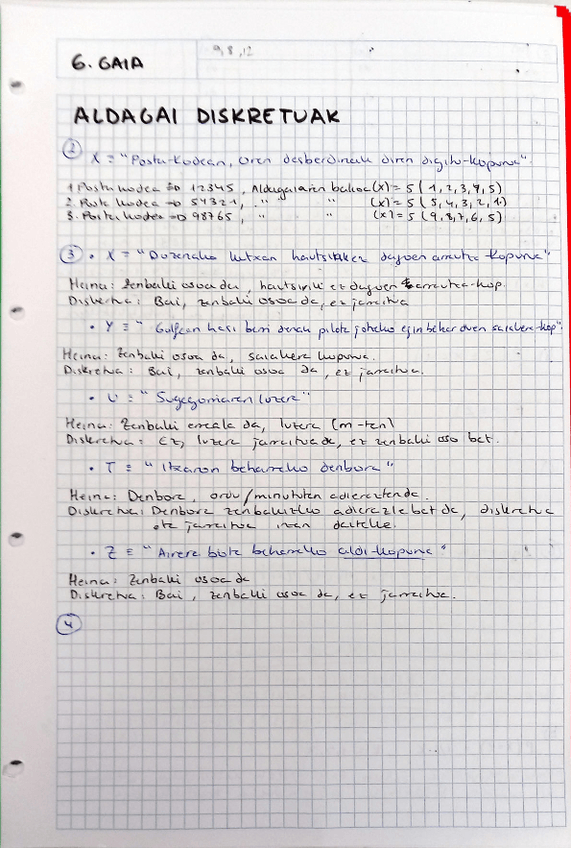 9, 8, 12
6. GAIA
ALDAGAI DISKRETUAK
2 X = "Posta-Kodean, zeren desberdinak diren digitu-kopurua".
1. Posta kodea => 12345, Aldagaiaren balioa (x) = 5 (1, 2, 3, 4, 5)
2. Posta kodea => 54321, " " (x) = 5 (5, 4, 3, 2, 1)
3. Posta kodea => 98765, " " (x) = 5 (9, 8, 7, 6, 5)
3 • X = "Dozenako kutxan dauden arrautza kopurua"
Heina: Zenbaki osoa da, hautsirik ez dauden arrautza-kop.
Diskretua: Bai, zenbaki osoa da, ez jarraitua
• Y = "Golfean hasi berri denak pilota jotzeko egin behar duen saiakera-kop".
Heina: Zenbaki osoa da, saiakera kopurua.
Diskretua: Bai, zenbaki osoa da, ez jarraitua.
• U = "Sugegorriaren luzera"
Heina: Zenbaki erreala da, luzera (m-tan)
Diskretua: Ez, luzera jarraitua da, ez zenbaki oso bat.
• T = "Itxaron beharreko denbora"
Heina: Denbora, ordu/minututan adierazten da.
Diskretua: Denbora zenbakizko adierazle bat da, diskretua
eta jarraitua izan daiteke.
• Z = "Airera bota beharreko aldi-kopurua"
Heina: Zenbaki osoa da
Diskretua: Bai, zenbaki osoa da, ez jarraitua.
4